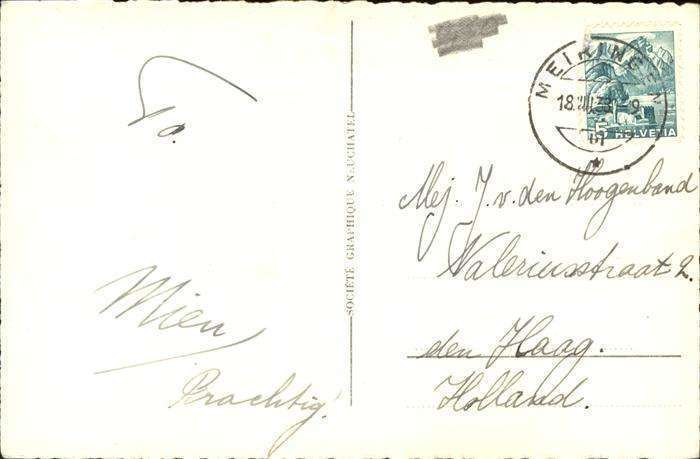 To.
Mien
Prachtig!
SOCIÉTÉ GRAPHIQUE NEUCHATEL
MEIRINGEN
18.VIII.38.-9
HELVETIA
5
Mej. J. v. den Hoogenband
Valeriusstraat 2.
den Haag.
Holland.